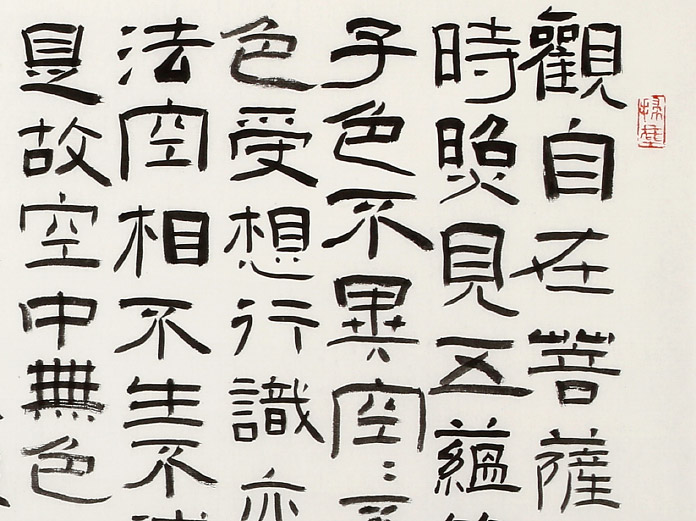 觀自在菩薩
時照見五蘊
子色不異空〻
色受想行識亦
法空相不生不
是故空中無色